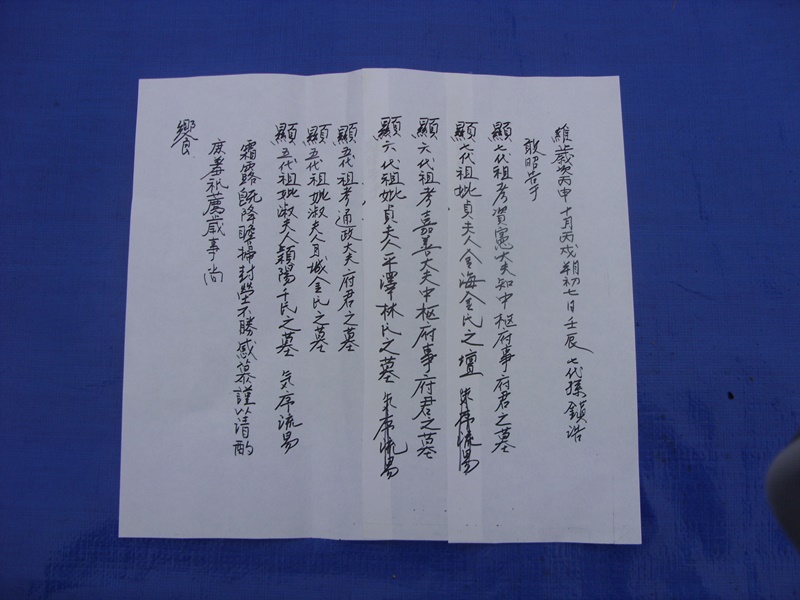 維歲次丙申 十月丙戌朔初七日壬辰 七代孫鎭浩
敢昭告于
顯七代祖考資憲大夫知中樞府事府君之墓
顯七代祖妣貞夫人金海金氏之壇 気序流易
顯六代祖考嘉善大夫中樞府事府君之墓
顯六代祖妣貞夫人平澤林氏之墓 気序流易
顯五代祖考通政大夫府君之墓
顯五代祖妣淑夫人月城金氏之墓
顯五代祖妣淑夫人穎陽千氏之墓 気序流易
霜露旣降瞻掃封塋不勝感慕謹以淸酌
庶羞祗薦歲事尙
饗